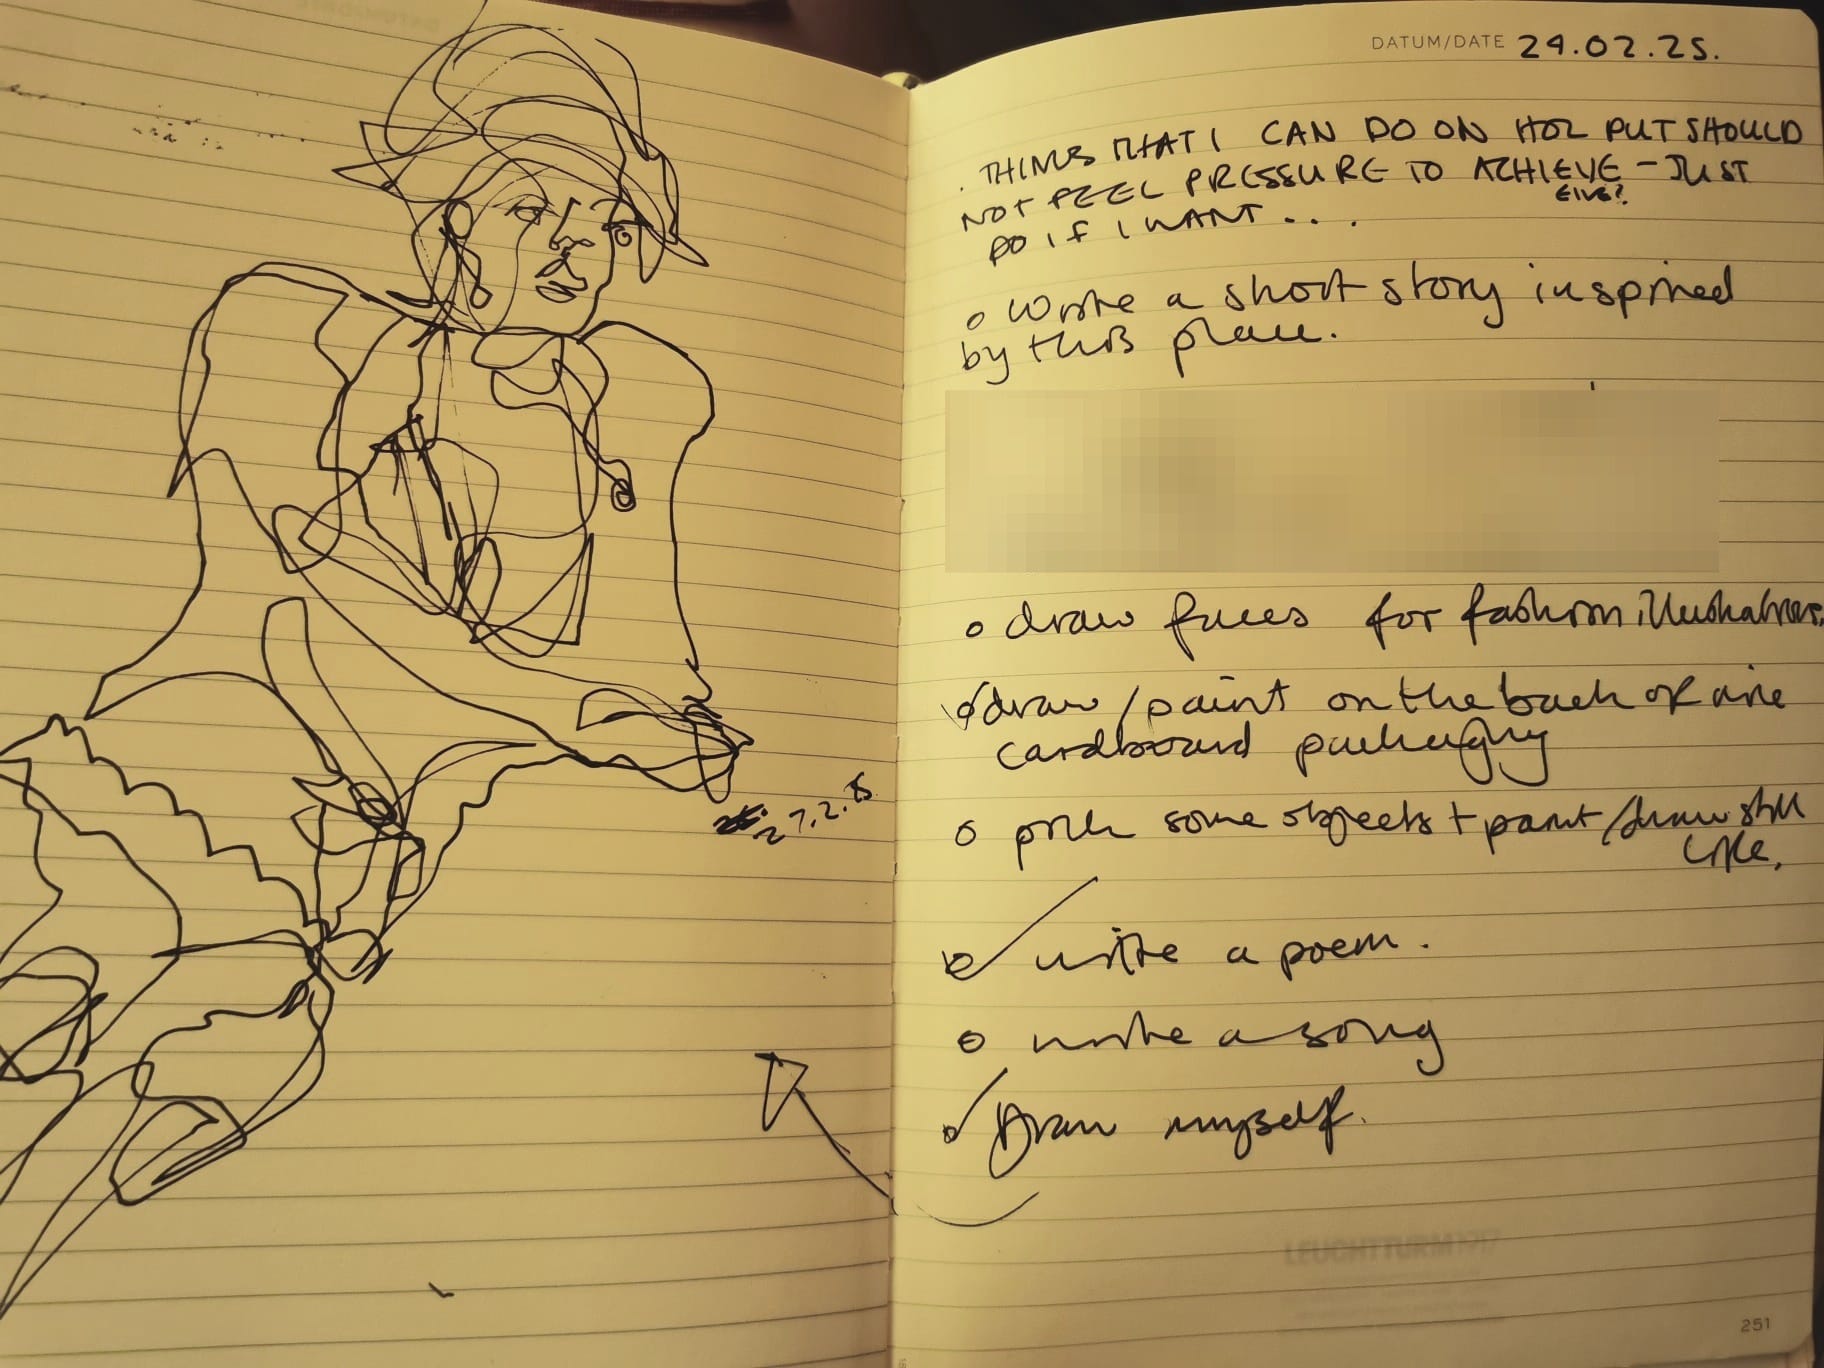 27.2.25
DATUM/DATE 24.02.25.
THINGS THAT I CAN DO ON HOL BUT SHOULD
NOT FEEL PRESSURE TO ACHIEVE - JUST
DO IF I WANT . . .
o Write a short story inspired
by this place.
o draw faces for fashion illustrations.
o draw/paint on the back of
cardboard packaging
o pick some objects + paint/draw still
life.
o write a poem.
o write a song
o Draw myself.
LEUCHTTURM1917
251